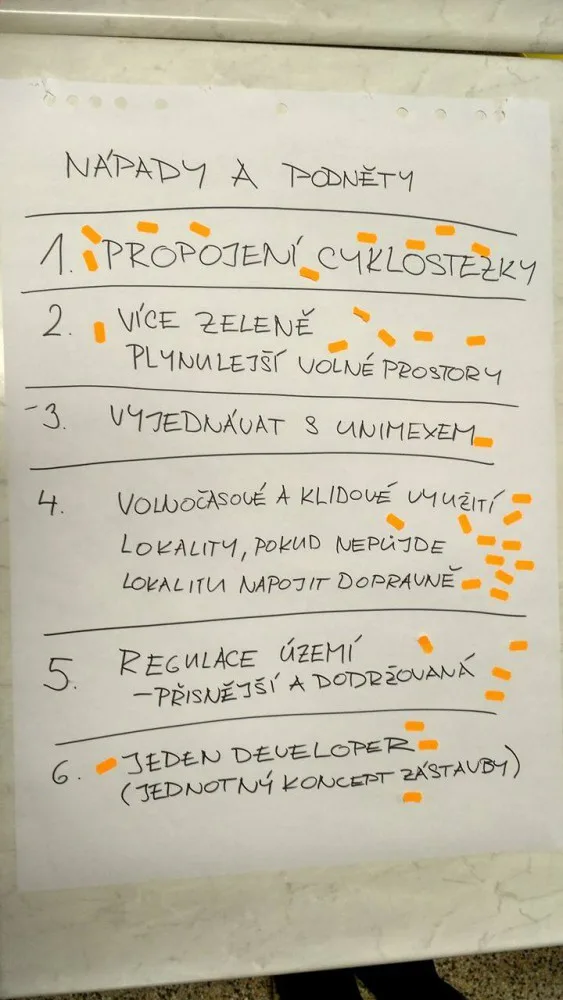 NÁPADY A PODNĚTY
1. PROPOJENÍ CYKLOSTEZKY
2. VÍCE ZELENĚ
PLYNULEJŠÍ VOLNÉ PROSTORY
3. VYJEDNÁVAT S UNIMEXEM
4. VOLNOČASOVÉ A KLIDOVÉ VYUŽITÍ
LOKALITY, POKUD NEPŮJDE
LOKALITU NAPOJIT DOPRAVNĚ
5. REGULACE ÚZEMÍ
– PŘISNĚJŠÍ A DODRŽOVANÁ
6. JEDEN DEVELOPER
(JEDNOTNÝ KONCEPT ZÁSTAVBY)